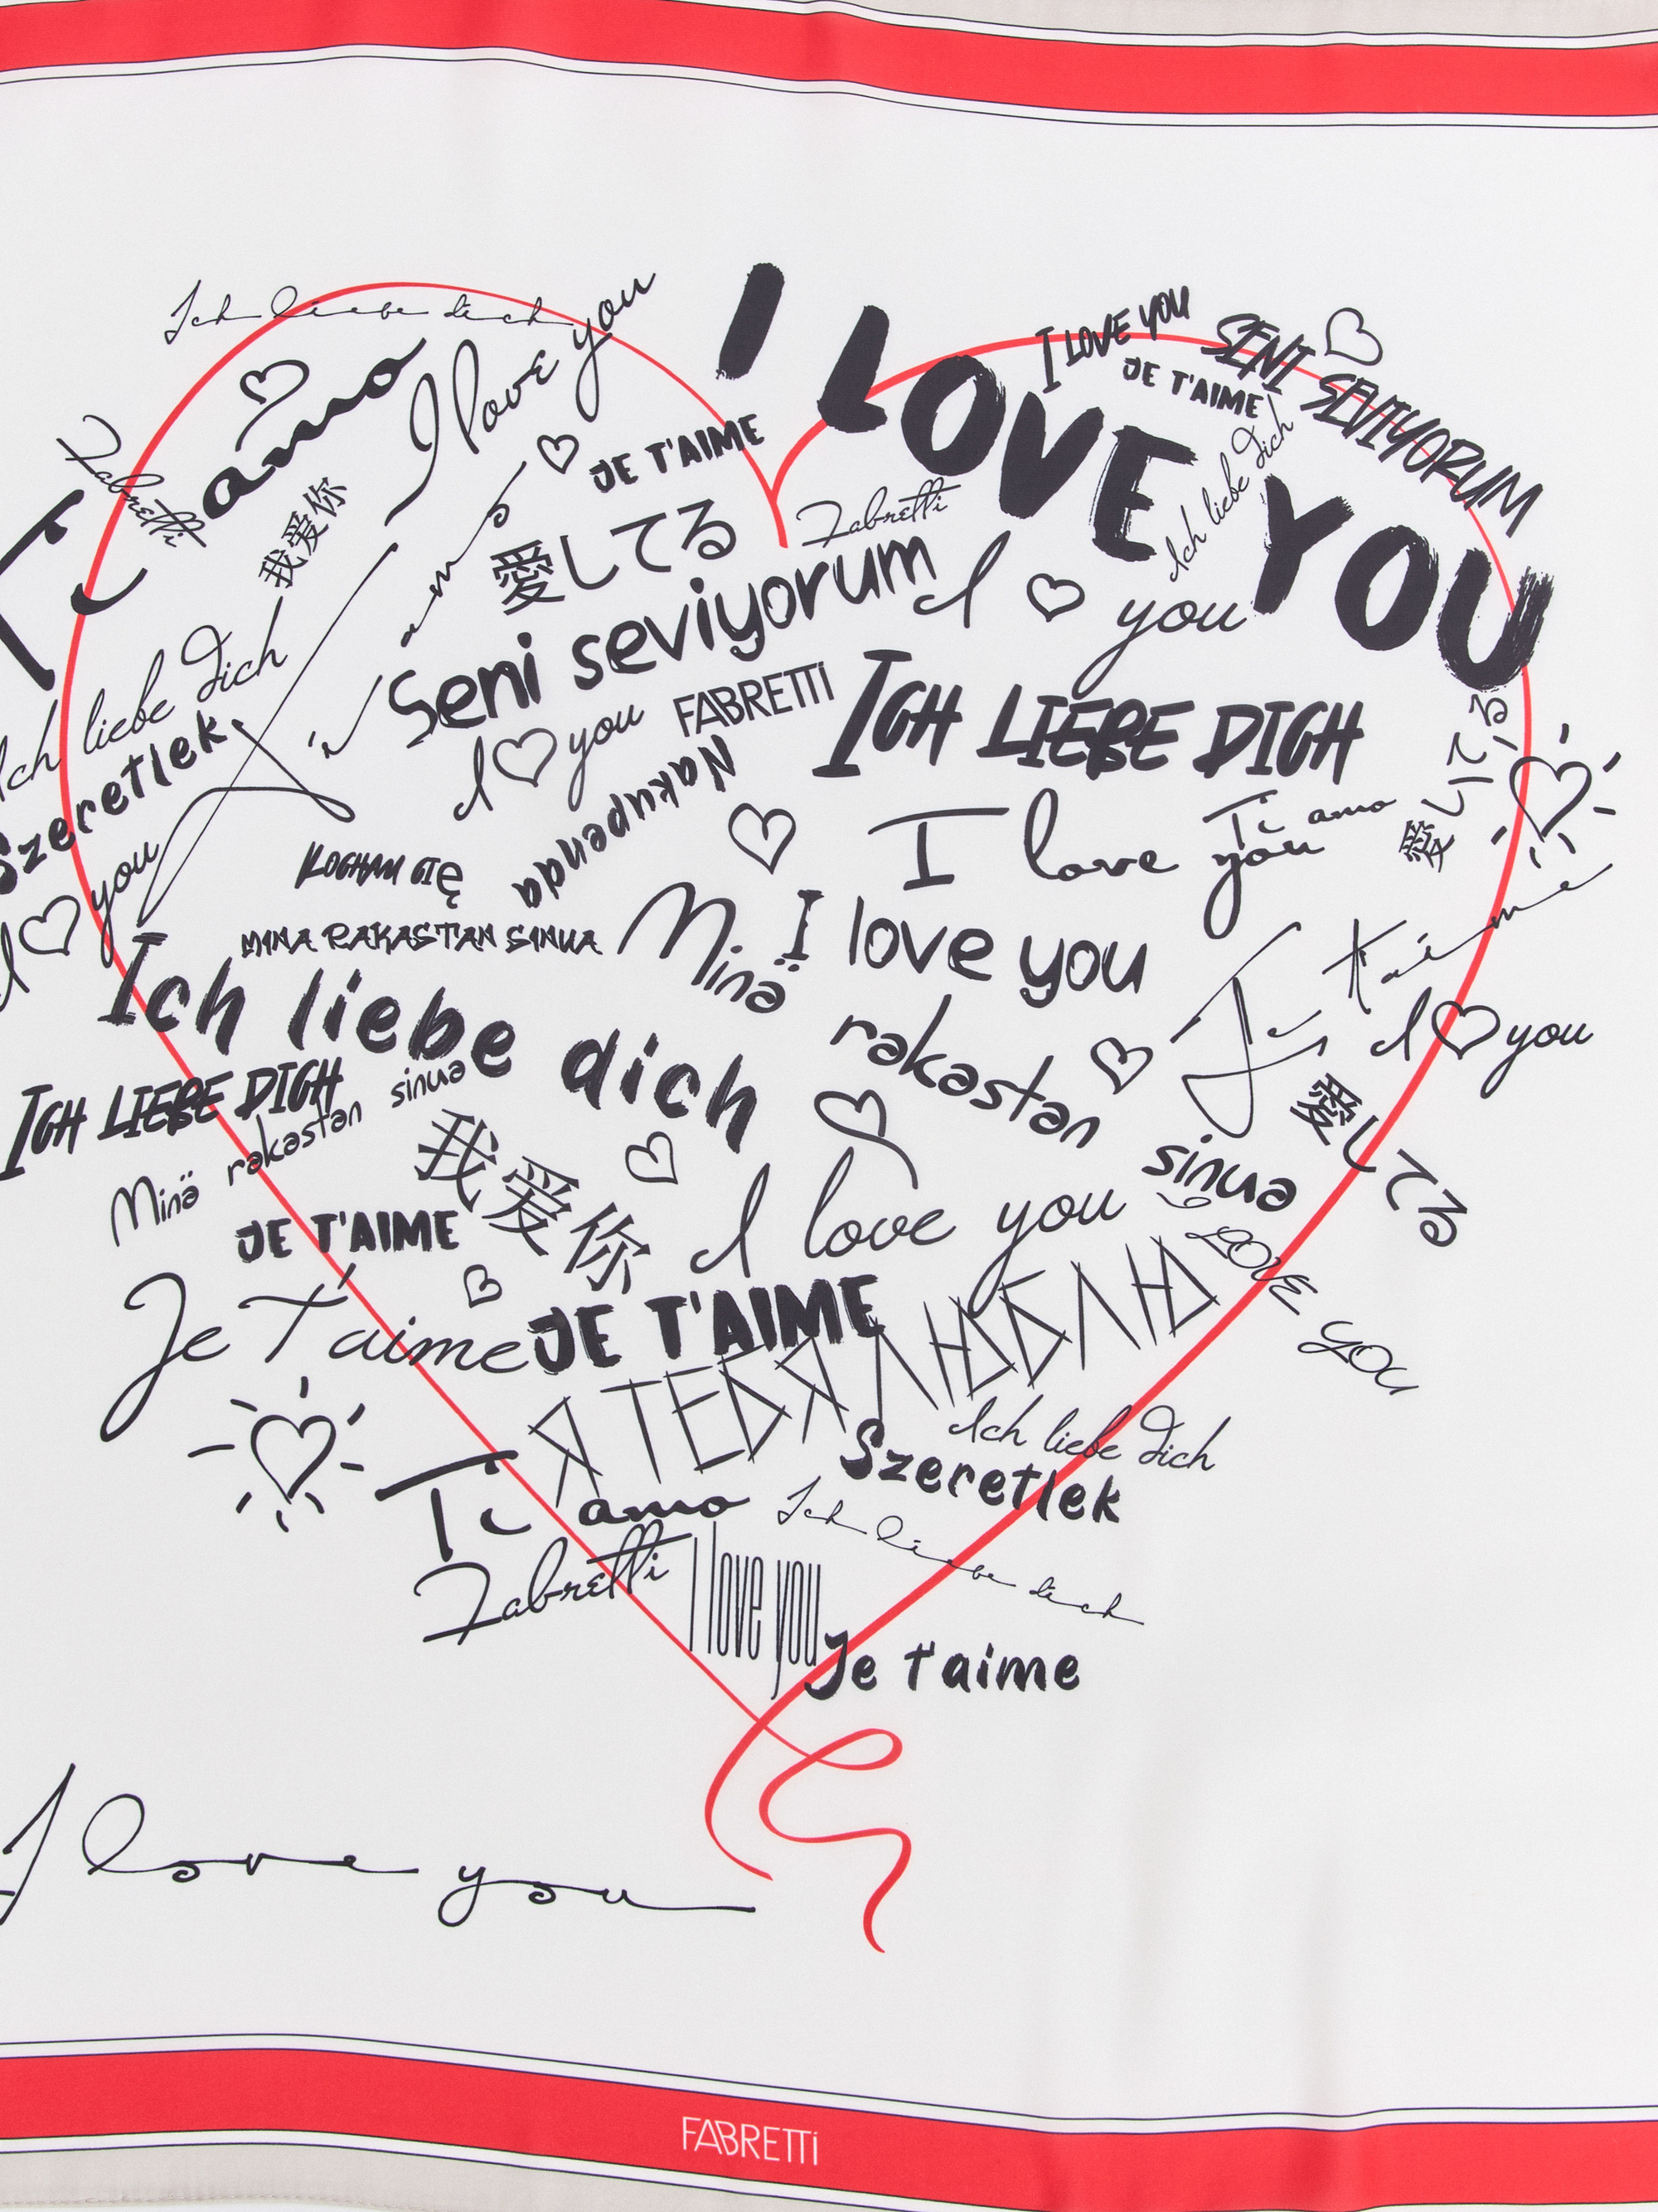 Ich liebe dich
I love you
I LOVE YOU
I LOVE YOU
SENI SEVIYORUM
JE T'AIME
Ti amo
Fabretti
我爱你
JE T'AIME
Ti amo
愛してる
Fabretti
Ich liebe dich
Seni seviyorum
I ♡ you
Ich liebe dich
Szeretlek
I ♡ you
FABRETTI
ICH LIEBE DICH
愛してる
Nakupenda
I ♡ you
I love you
Ti amo
KOCHAM CIĘ
MINA RAKASTAN SINUA
Minä rakastan sinua
I love you
Je t'aime
I ♡ you
Ich liebe dich
ICH LIEBE DICH
Minä rakastan sinua
愛してる
我爱你
I love you
JE T'AIME
I LOVE YOU
Je t'aime
JE T'AIME
Я ТЕБЯ ЛЮБЛЮ
Ich liebe dich
Szeretlek
Ti amo
Ich liebe dich
Fabretti
I love you
Je t'aime
I love you
FABRETTI